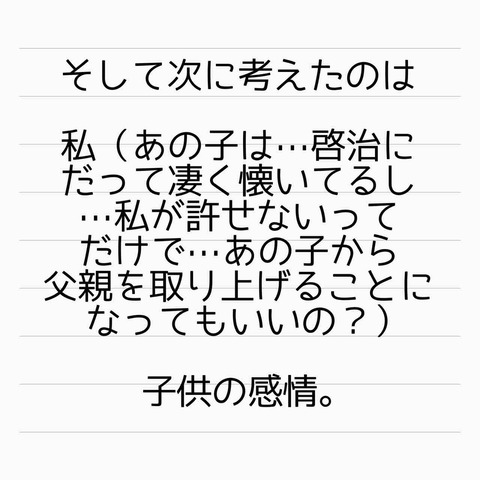 そして次に考えたのは
私（あの子は…啓治に
だって凄く懐いてるし
…私が許せないって
だけで…あの子から
父親を取り上げることに
なってもいいの？）
子供の感情。